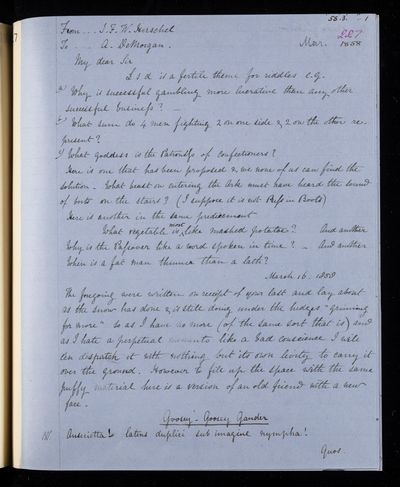 55.3. 1
From ... J. F. W. Herschel
227
To ... A. DeMorgan.
Mar. 1858
My dear Sir
L s d is a fertile theme for riddles e.g.
Why is successful gambling more lucrative than any other
successful business? —
What sum do 4 men fighting 2 on one side & 2 on the other re-
present?
What goddess is the Patroness of confectioners?
Here is one that has been proposed & we none of us can find the
solution. What beast on entering the Ark must have heard the sound
of boots on the stairs? (I suppose it is not Puss in Boots)
Here is another in the same predicament
What vegetable is most like mashed potatoe? And another
Why is the Passover like a word spoken in time? — And another
When is a fat man thinner than a lath?
March 16. 1858
The foregoing were written on receipt of your last and lay about
as the snow has done & is still doing under the hedges "grinning
for more" So as I have no more (of the same sort that is) and
as I hate a perpetual memento like a bad conscience I will
een dispatch it with nothing but its own levity to carry it
over the ground. However to fill up the space with the same
puffy material here is a version of an old friend with a new
face.
Goosey - Goosey Gander
Anserietta! latens duplici sub imagine nympha!
Quos